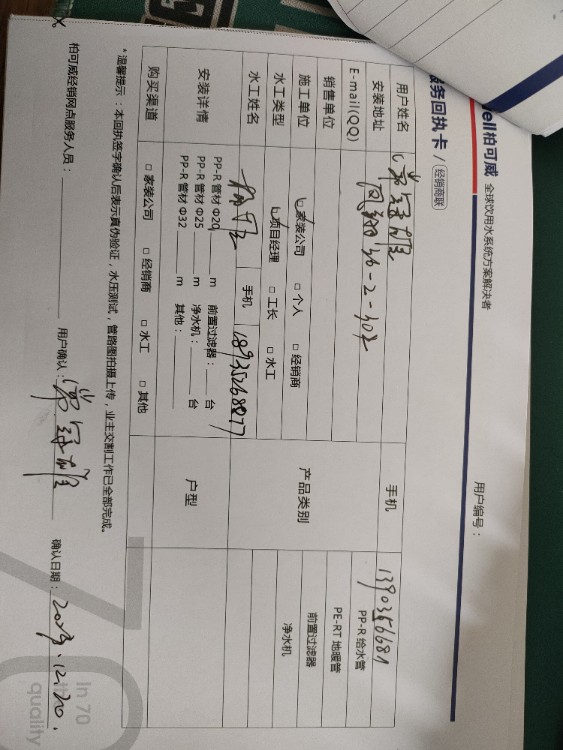 ell柏可威 全球饮用水系统方案解决者
务回执卡 / 经销商联
用户编号：
用户姓名
手机
安装地址 36-2-302
E-mail(QQ)
PP-R 给水管
销售单位
产品类别
PE-RT 地暖管
施工单位 □ 家装公司 □ 个人 □ 经销商
前置过滤器
水工类型 □ 项目经理 □ 工长 □ 水工
净水机
水工姓名 手机 18935268877
安装详情
PP-R 管材 Φ20 m 前置过滤器： 台
PP-R 管材 Φ25 m 净水机： 台
PP-R 管材 Φ32 m 其他：
户型
购买渠道 □ 家装公司 □ 经销商 □ 水工 □ 其他
*温馨提示：本回执签字确认后表示真伪验证，水压测试，管路图拍摄上传，业主交割工作已全部完成。
柏可威经销网点服务人员： 用户确认： 确认日期： 12.20.
70
In 70
quality